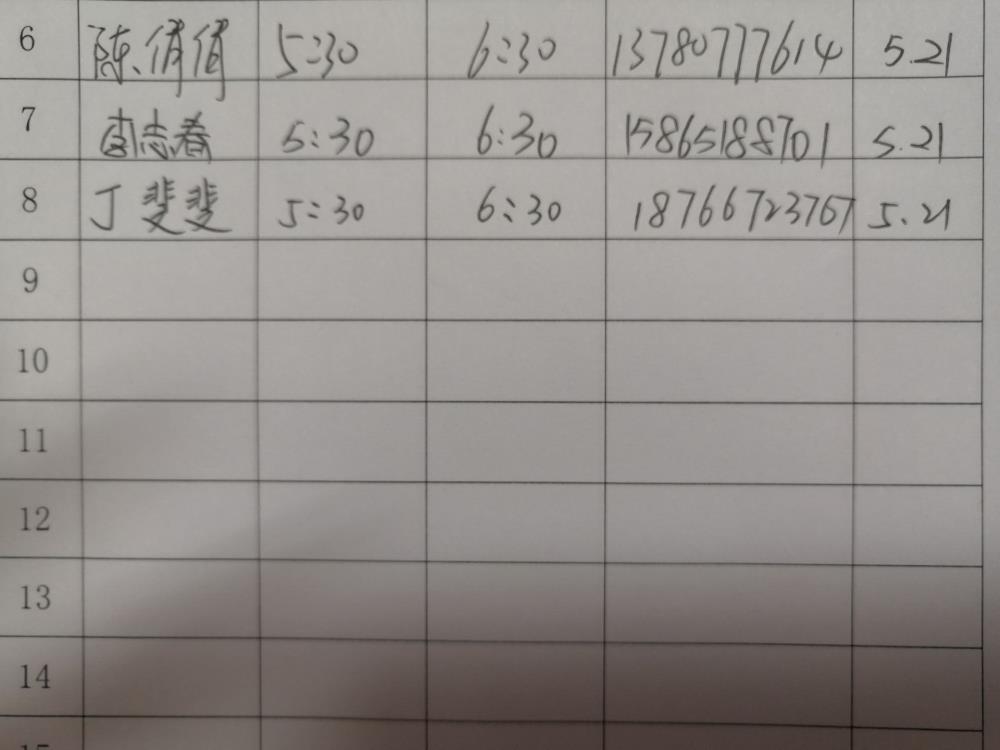 6 陈俏俏 5:30 6:30 13780777614 5.21
7 李志春 5:30 6:30 15865188701 5.21
8 丁斐斐 5:30 6:30 18766723767 5.21
9
10
11
12
13
14